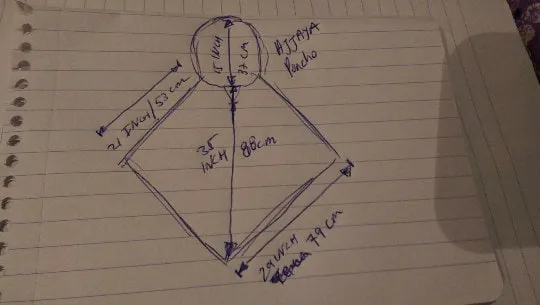 15 INCH
37 CM
AJJAYA
Poncho
21 INCH/53 cm
35
INCH
88cm
29 INCH
79 cm